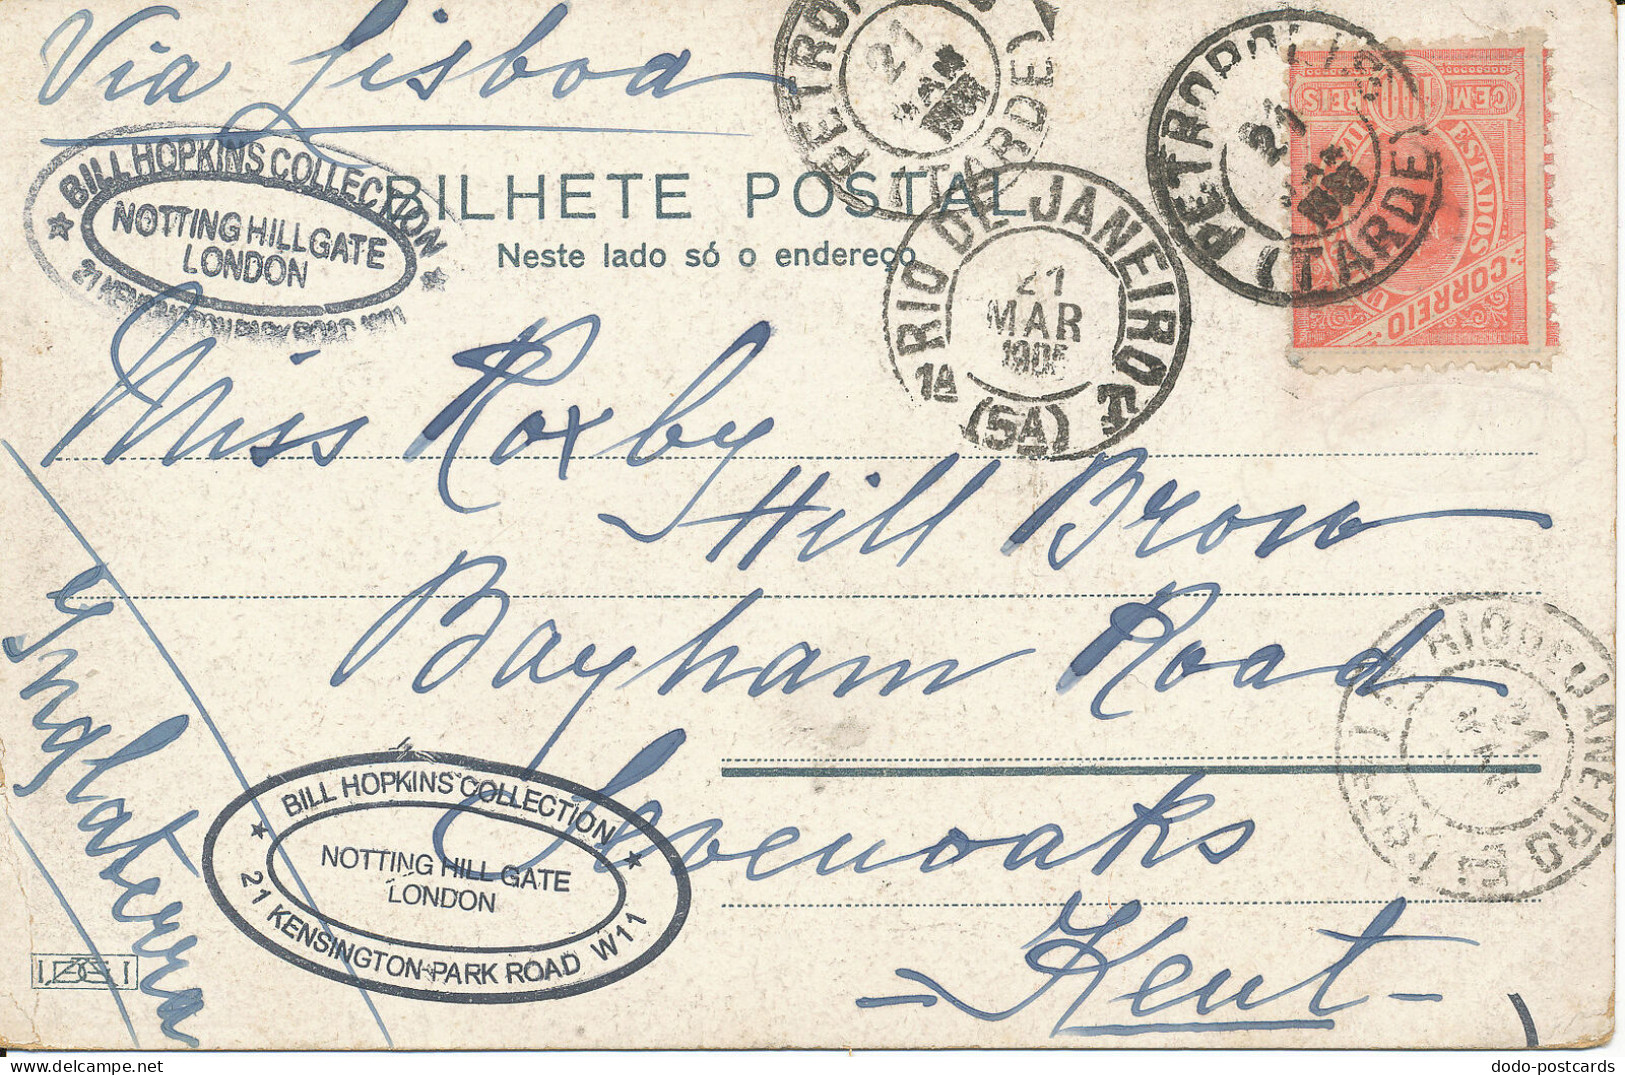 Via Lisboa
BILHETE POSTAL
Neste lado só o endereço
BILL HOPKINS COLLECTION
NOTTING HILL GATE
LONDON
21 KENSINGTON PARK ROAD W11
PETROPOLIS
21
MAR
(TARDE)
PETROPOLIS
21
(TARDE)
CEM 100 REIS
ESTADOS
CORREIO
RIO DE JANEIRO
21
MAR
1A (5A) T
Miss Roxby
Hill Brow
Bayham Road
Sevenoaks
Kent
Inglaterra
RIO DE JANEIRO
21
MAR
BILL HOPKINS COLLECTION
NOTTING HILL GATE
LONDON
21 KENSINGTON PARK ROAD W11
dodo-postcards